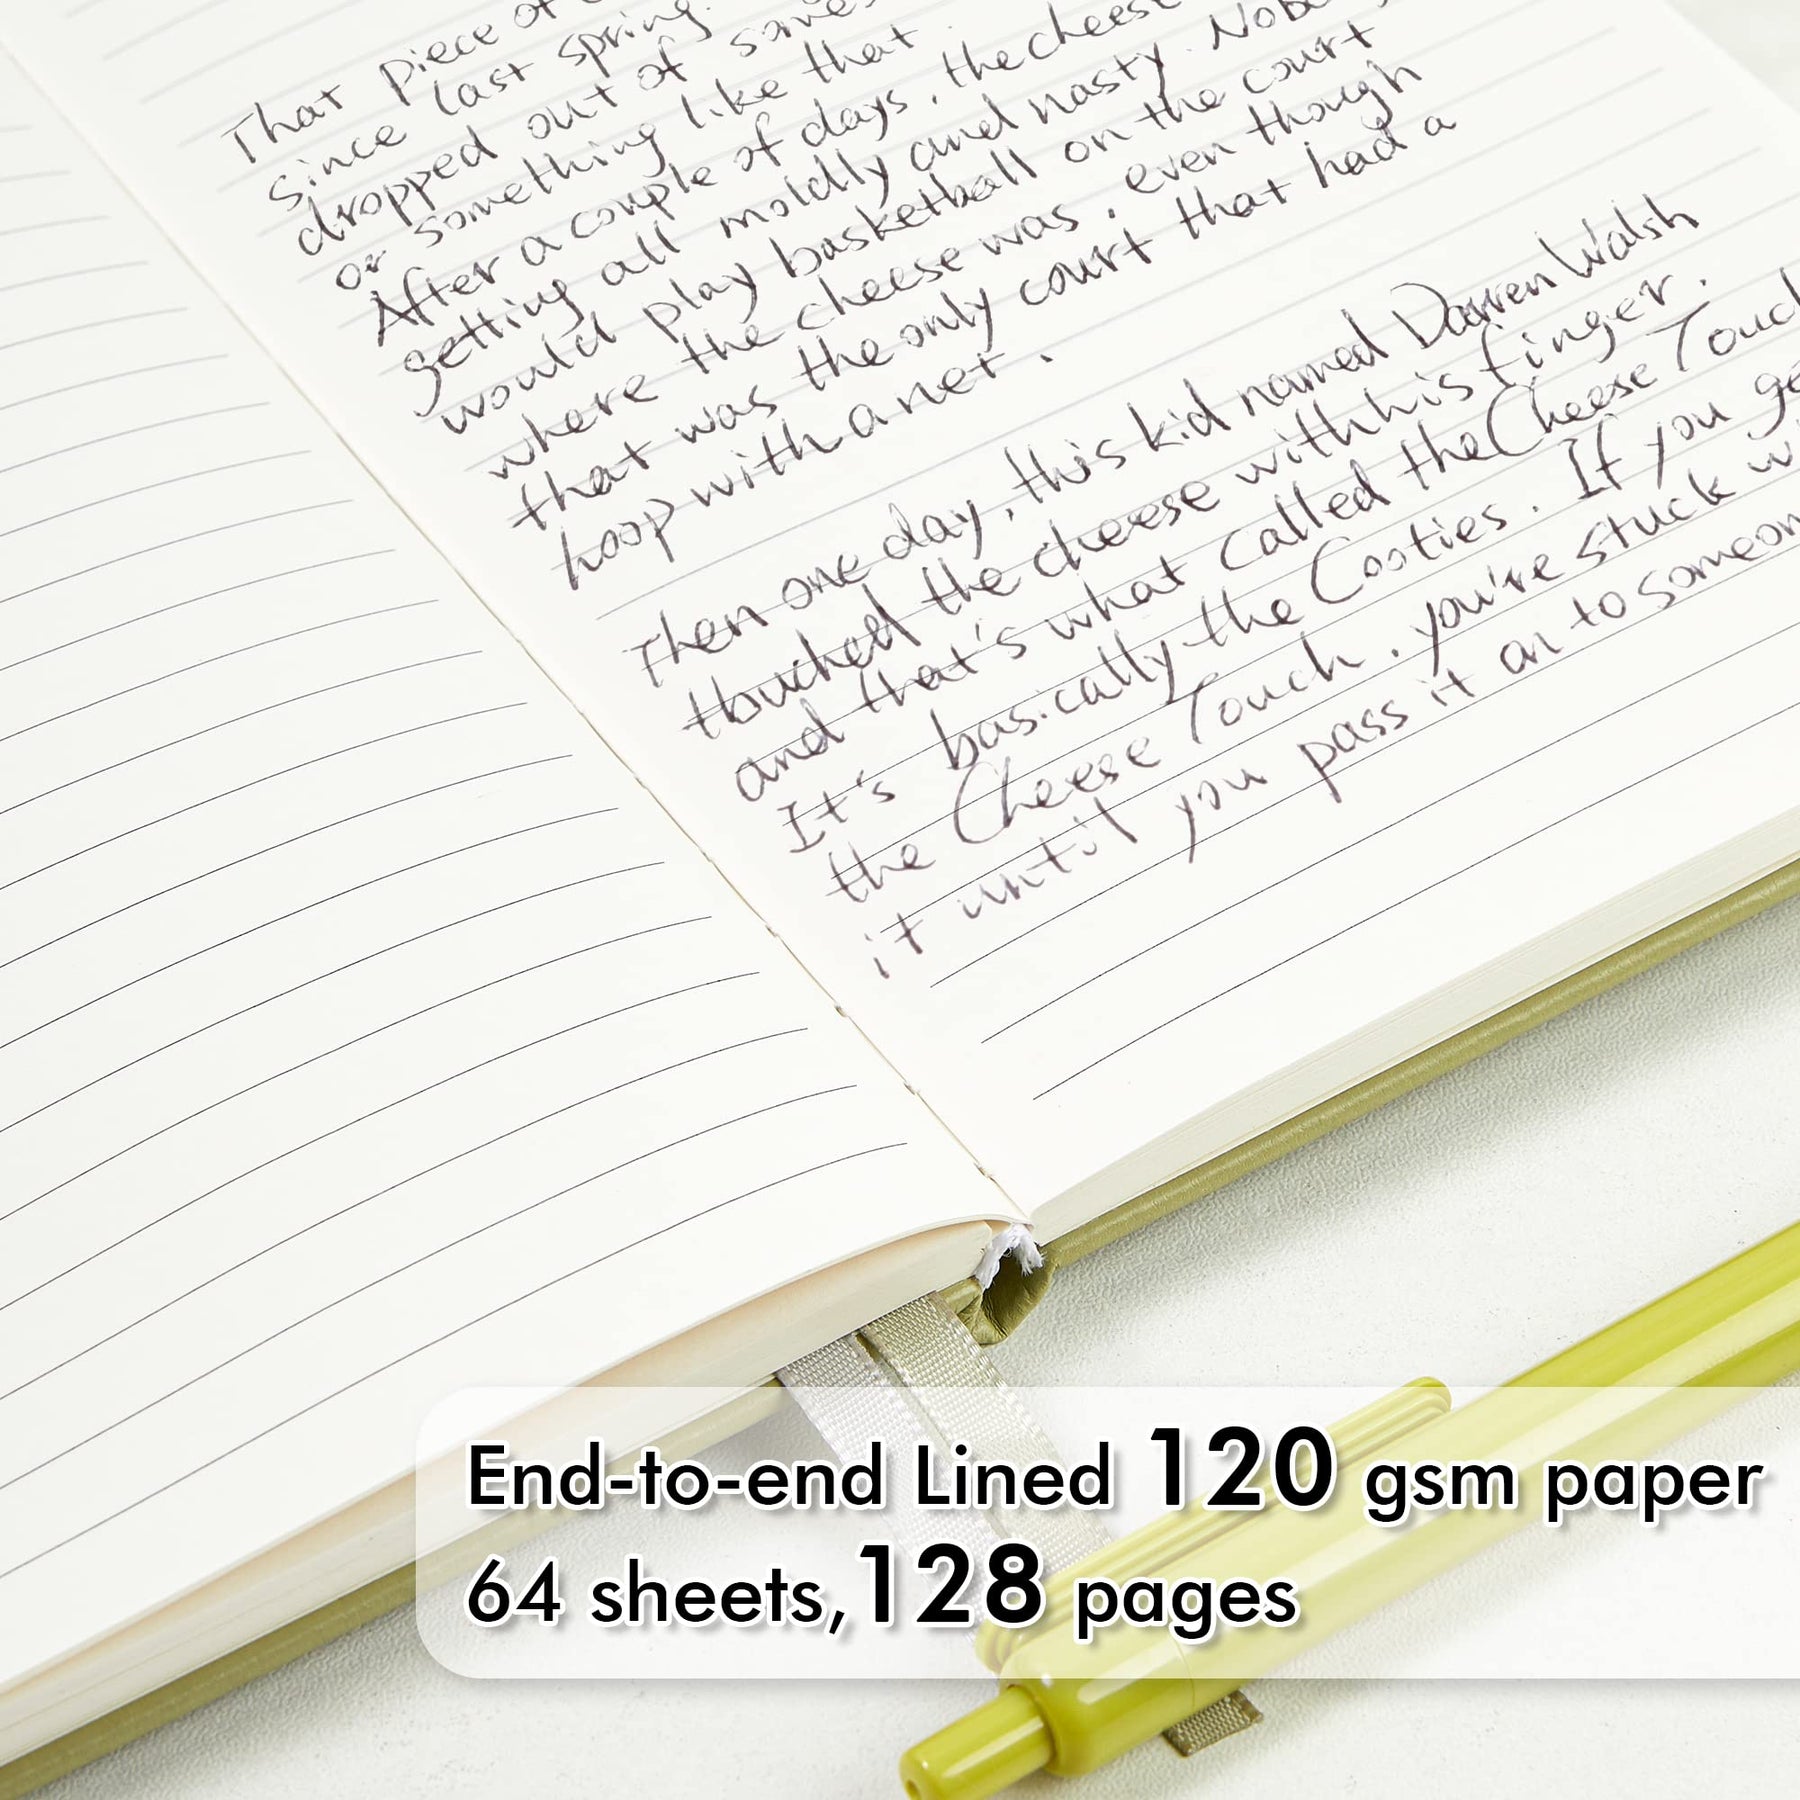 That piece of
since last spring.
dropped out of
or something like that.
After a couple of days, the cheese
getting all moldly and nasty. Nob
would play basketball on the court
where the cheese was, even though
that was the only court that had a
hoop with a net.
Then one day, this kid named Darren Walsh
touched the cheese with his finger.
and that's what called the Cheese Touch
It's basically the Cooties. If you ge
the Cheese Touch, you're stuck wi
it until you pass it on to someon
End-to-end Lined 120 gsm paper
64 sheets,128 pages